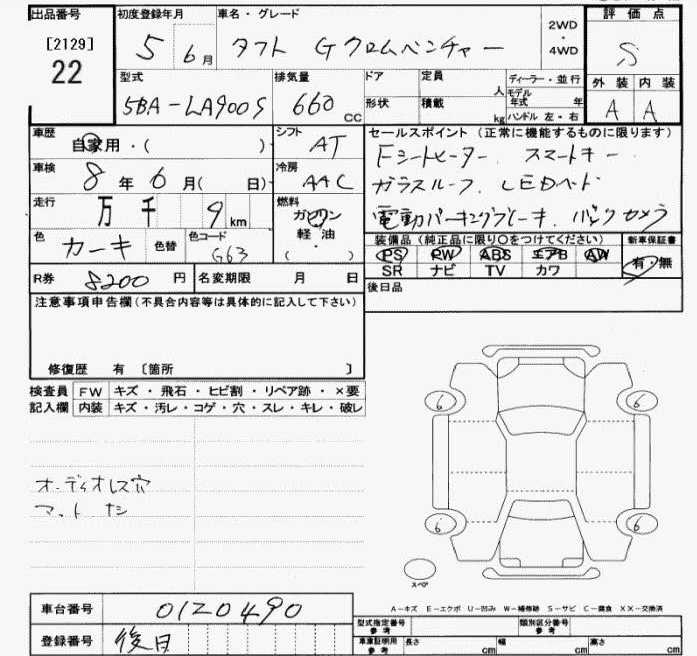 出品番号 初度登録年月 車名・グレード 2WD 評価点
[2129] 5 6月 タフト Gクロムベンチャー ・ S
22 4WD
型式 排気量 ドア 定員 人 ディーラー・並行 外装 内装
5BA-LA900S 660cc 形状 積載 kg モデル年式 年 A A
ハンドル 左・右
車歴 自家用・( ) シフト AT セールスポイント (正常に機能するものに限ります)
車検 8年6月( 日) 冷房 AAC Fシートヒーター、スマートキー
ガラスルーフ、LEDヘッド
走行 万 千 9 km 燃料 ガソリン 電動パーキングブレーキ、バックカメラ
軽・油
( )
色 カーキ 色替 色コード G63 装備品 (純正品に限り〇をつけてください) 新車保証書
PS PW ABS エアB AW 有・無
R券 8200円 名変期限 月 日 SR ナビ TV カワ
注意事項申告欄 (不具合内容等は具体的に記入して下さい) 後日品
修復歴 有 〔箇所 〕
検査員 FW キズ・飛石・ヒビ割・リペア跡・×要
記入欄 内装 キズ・汚レ・コゲ・穴・スレ・キレ・破レ
6 6
オーディオレス穴
マット ナシ
6 6
スペア
A-キズ E-エクボ U-凹み W-補修跡 S-サビ C-腐食 XX-交換済
車台番号 0120490 型式指定番号 参考 類別区分番号 参考
登録番号 後日 車庫証明用 参考 長さ cm 幅 cm 高さ cm